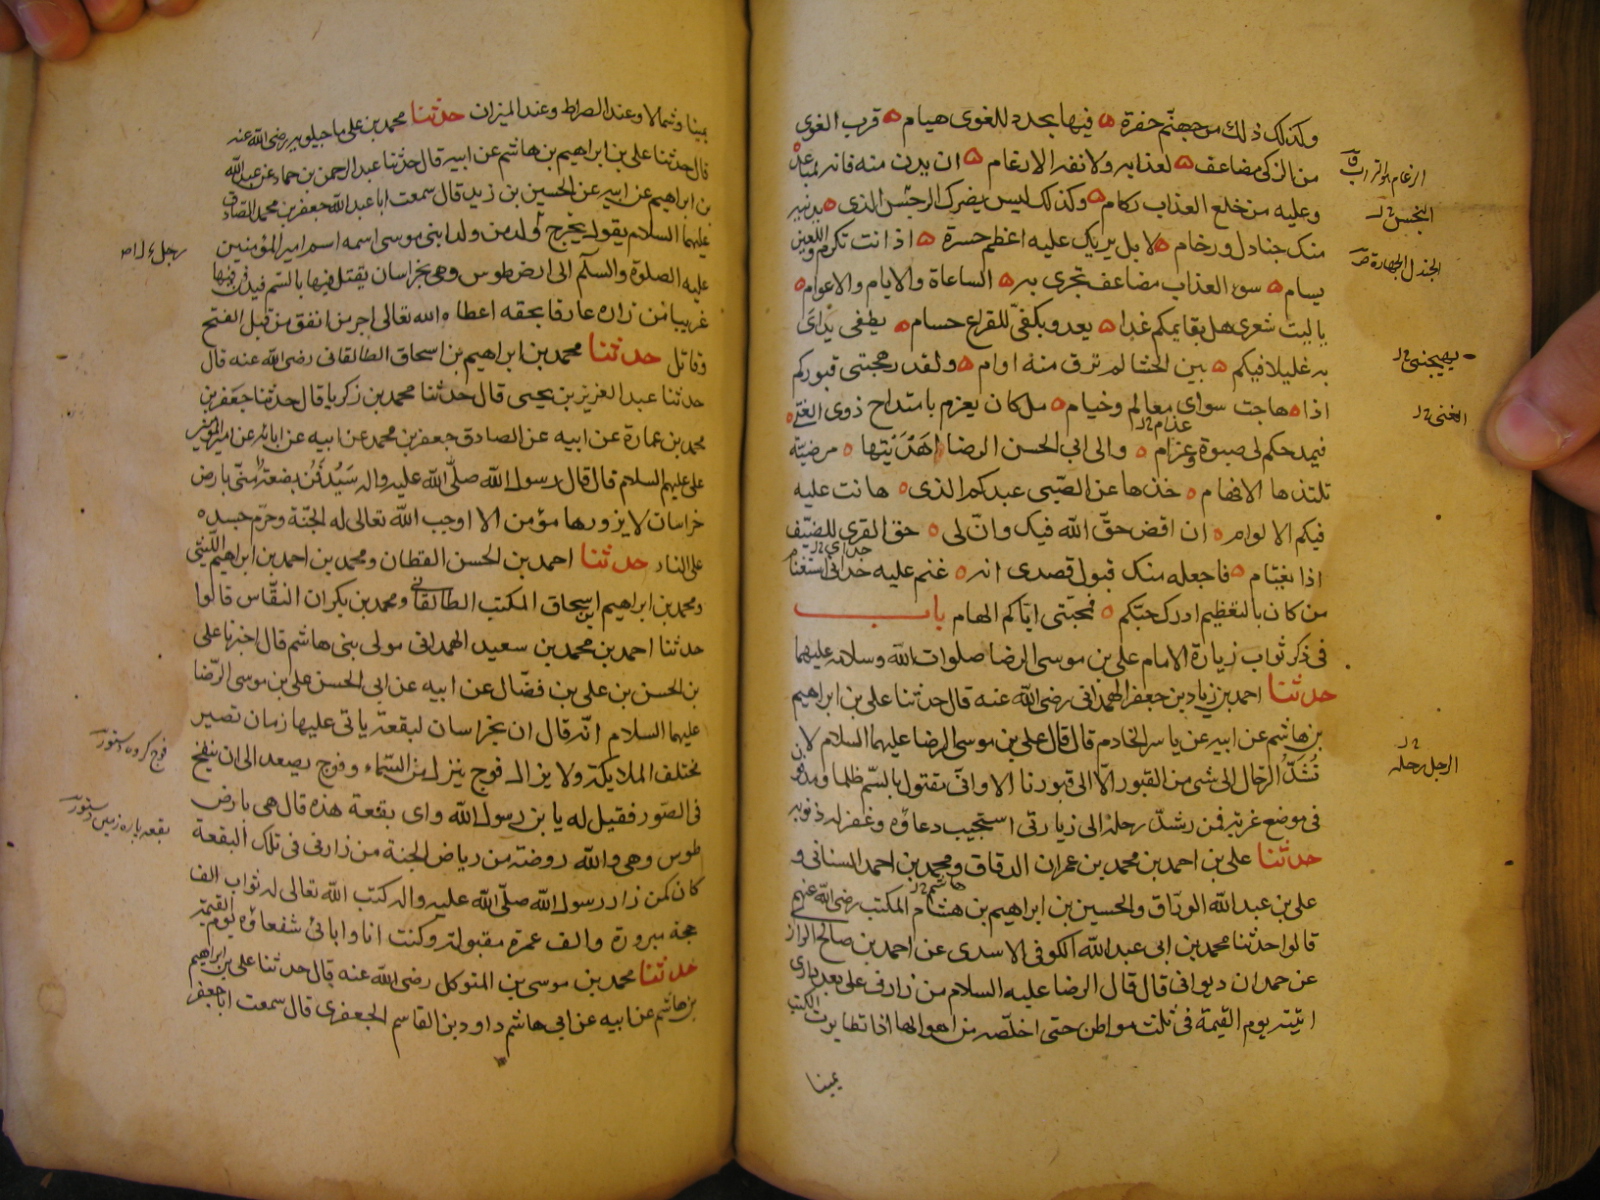 ولكذلك ذلك من جهنم حفرة ه فيها يجدد للغوى هيام ه قرب الغوى
من الزكى مضاعف ه لعذابه ولانفه الارغام ه ان يدن منه فانه لمباعد
وعليه من خلع العذاب ركام ه وكذلك ليس يضرك الرجس الذى ه يدنيه
منك جنادل ورخام ه لا بل يريك عليه اعظم حسرة ه اذ انت تكرم واللعين
يسام ه سوء العذاب مضاعف تجرى به ه الساعاة والايام والاعوام ه
ياليت شعرى هل بقايمكم غدا ه يعدو بكفى للقراع حسام ه يطفى يداى
به غليلا فيكم ه بين الحشا لم ترق منه اوام ه ولقد يهيجنى قبوركم
اذا ه هاجت سواى معالم وخيام ه من كان يعزم بامتداح ذوى الغنى ه
فيمدحكم لى صبوة وعزام ه والى ابى الحسن الرضا اهديتها ه مرضية
تلتذها الافهام ه خذها عن الضبى عبدكم الذى ه هانت عليه
فيكم الالوام ه ان اقض حق الله فيك وان لى ه حق القرى للضيف
اذا يغتام ه فاجعله منك قبول قصدى انه ه غنم عليه
من كان بالتعظيم ادرك حبكم ه فمحبتى اياكم الهام باب
فى ذكر ثواب زيارة الامام على بن موسى الرضا صلوات الله وسلامه عليهما
حدثنا احمد بن زياد بن جعفر الهمدانى رضى الله عنه قال حدثنا على بن ابراهيم
بن هاشم عن ابيه عن ياسر الخادم قال قال على بن موسى الرضا عليهما السلام لا
تشد الرحال الى شى من القبور الا الى قبورنا الا وانى مقتول بالسم ظلما ومدفون
فى موضع غربة فمن شد رحله الى زيارتى استجيب دعاؤه وغفر له ذنوبه
حدثنا على بن احمد بن محمد بن عمران الدقاق ومحمد بن احمد السنانى و
على بن عبد الله الوراق والحسين بن ابراهيم بن هشام المكتب رضى الله عنهم
قالوا حدثنا محمد بن ابى عبد الله الكوفى الاسدى عن احمد بن صالح الرازى
عن حمدان ديوانى قال قال الرضا عليه السلام من زارنى على بعد دارى
اتيته يوم القيمة فى ثلث مواطن حتى اخلصه من اهوالها اذا تطايرت الكتب
يمينا
الرغام بالفتح التراب ق
النجس خ ل
الجندل الحجارة ص
يهيجنى خ ل
الغنى خ ل
الرجل رحله
يمينا وشمالا وعند الصراط وعند الميزان حدثنا محمد بن على ماجيلويه رضى الله عنه
قال حدثنا على بن ابراهيم بن هاشم عن ابيه قال حدثنا عبد الرحمن بن حماد عن عبد الله
بن ابراهيم عن ابيه عن الحسين بن زيد قال سمعت ابا عبد الله جعفر بن محمد الصادق
عليهما السلام يقول يخرج ولد من ولد ابنى موسى اسمه اسم امير المؤمنين
عليه الصلوة والسلام الى ارض طوس وهى بخراسان يقتل فيها بالسم فيدفن فيها
غريبا من زاره عارفا بحقه اعطاه الله تعالى اجر من انفق من قبل الفتح
وقاتل حدثنا محمد بن ابراهيم بن اسحاق الطالقانى رضى الله عنه قال
حدثنا عبد العزيز بن يحيى قال حدثنا محمد بن زكريا قال حدثنا جعفر بن
محمد بن عمارة عن ابيه عن الصادق جعفر بن محمد عن ابيه عن ابائه عن امير المؤمنين
على عليهم السلام قال قال رسول الله صلى الله عليه واله ستدفن بضعة منى بارض
خراسان لا يزورها مؤمن الا اوجب الله تعالى له الجنة وحرم جسده
على النار حدثنا احمد بن الحسن القطان ومحمد بن احمد بن ابراهيم الليثى
ومحمد بن ابراهيم بن اسحاق المكتب الطالقانى ومحمد بن بكران النقاس قالوا
حدثنا احمد بن محمد بن سعيد الهمدانى مولى بنى هاشم قال اخبرنا على
بن الحسن بن على بن فضال عن ابيه عن ابى الحسن على بن موسى الرضا
عليهما السلام انه قال ان بخراسان لبقعة ياتى عليها زمان تصير
مختلف الملايكة ولا يزال فوج ينزل من السماء وفوج يصعد الى ان ينفخ
فى الصور فقيل له يا بن رسول الله واى بقعة هذه قال هى بارض
طوس وهى والله روضة من رياض الجنة من زارنى فى تلك البقعة
كان كمن زار رسول الله صلى الله عليه واله كتب الله تعالى له ثواب الف
حجة مبرورة والف عمرة مقبولة وكنت انا وابائى شفعاؤه يوم القيمة
حدثنا محمد بن موسى بن المتوكل رضى الله عنه قال حدثنا على بن ابراهيم
بن هاشم عن ابيه عن ابى هاشم داود بن القاسم الجعفرى قال سمعت ابا جعفر
فوج كروه
بقعه پاره زمين